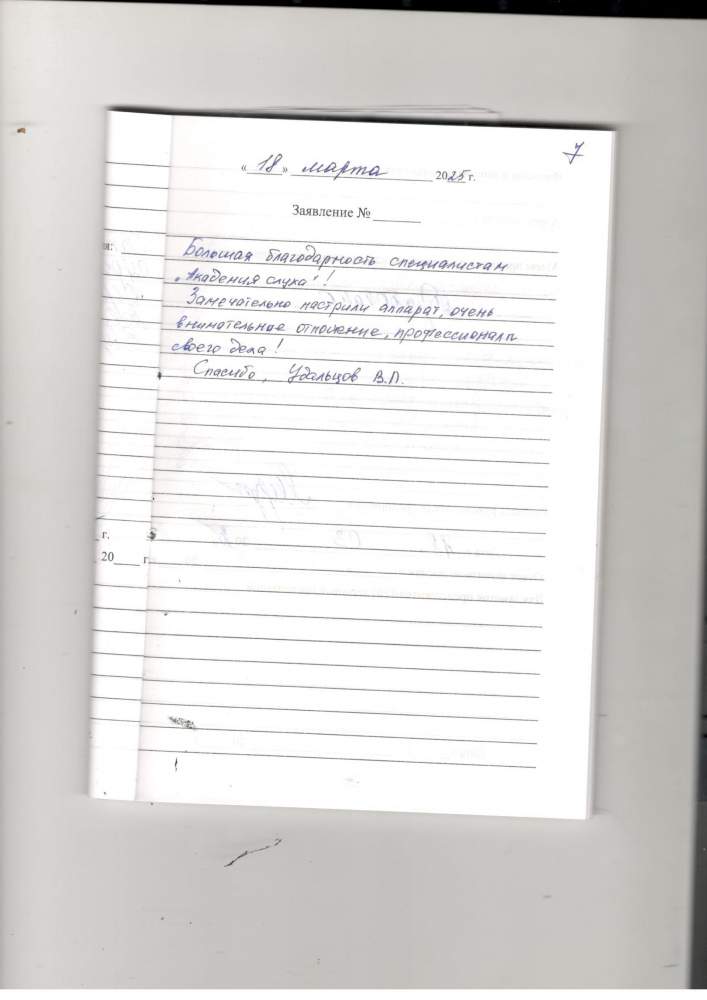 7
« 18 » марта 2025 г.
Заявление №
я:
Большая благодарность специалистам
"Академия слуха"!
Замечательно настрили аппарат, очень
внимательное отношение, профессионалы
своего дела!
Спасибо, Удальцов В.П.
г.
20 г.